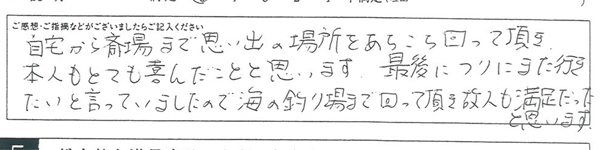 ご感想・ご指摘などがございましたらご記入ください
自宅から斎場まで思い出の場所をあちこち回って頂き、
本人もとても喜んだことと思います。最後につりにまた行き
たいと言っていましたので海の釣り場まで回って頂き故人も満足だった
と思います。